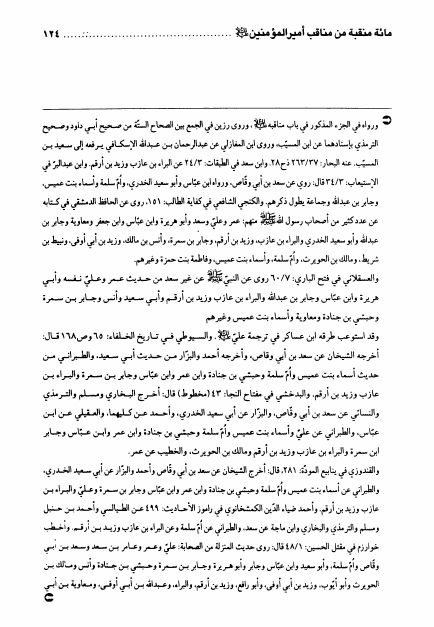 مائة منقبة من مناقب أميرالمؤمنين ﷺ .......................................... ١٢٤
ورواه في الجزء المذكور في باب مناقبه ﷺ، وروى رزين في الجمع بين الصحاح الستّة من صحيح أبي داود وصحيح
الترمذي بإسنادهما عن ابن المسيّب، وروى ابن المغازلي عن عبدالرحمان بن عبدالله الإسكافي يرفعه إلى سعيد بن
المسيّب. عنه البحار: ٢٦٣/٣٧ ذح٢٨. وابن سعد في الطبقات: ٢٤/٣ عن البراء بن عازب وزيد بن أرقم. وابن عبدالبرّ في
الإستيعاب: ٣٤/٣ قال: روي عن سعد بن أبي وقّاص، ورواه ابن عبّاس وأبو سعيد الخدري، وأمّ سلمة وأسماء بنت عميس،
وجابر بن عبدالله وجماعة يطول ذكرهم. والكنجي الشافعي في كفاية الطالب: ١٥١، روى عن الحافظ الدمشقي في كتابه
عن عدد كثير من أصحاب رسول الله ﷺ منهم: عمر وعليّ وسعد وأبو هريرة وابن عبّاس وابن جعفر ومعاوية وجابر بن
عبدالله وأبو سعيد الخدري والبراء بن عازب، وزيد بن أرقم، وجابر بن سمرة، وأنس بن مالك، وزيد بن أبي أوفى، ونبيط بن
شريط، ومالك بن الحويرث، وأمّ سلمة، وأسماء بنت عميس، وفاطمة بنت حمزة وغيرهم.
والعسقلاني في فتح الباري: ٦٠/٧ روى عن النبيّ ﷺ عن غير سعد من حديث عمر وعليّ نفسه وأبي
هريرة وابن عبّاس وجابر بن عبدالله والبراء بن عازب وزيد بن أرقم وأبي سعيد وأنس وجابر بن سمرة
وحبشي بن جنادة ومعاوية وأسماء بنت عميس وغيرهم
وقد استوعب طرقه ابن عساكر في ترجمة عليّ ﷺ. والسيوطي في تاريخ الخلفاء: ٦٥ وص١٦٨ قال:
أخرجه الشيخان عن سعد بن أبي وقاص، وأخرجه أحمد والبزّار من حديث أبي سعيد، والطبراني من
حديث أسماء بنت عميس وأمّ سلمة وحبشي بن جنادة وابن عمر وابن عبّاس وجابر بن سمرة والبراء بن
عازب وزيد بن أرقم. والبدخشي في مفتاح النجا: ٤٣ (مخطوط) قال: أخرج البخاري ومسلم والترمذي
والنسائي عن سعد بن أبي وقّاص، والبزّار عن أبي سعيد الخدري، وأحمد عن كليهما، والعقيلي عن ابن
عبّاس، والطبراني عن عليّ وأسماء بنت عميس وأمّ سلمة وحبشي بن جنادة وابن عمر وابن عبّاس وجابر
ابن سمرة والبراء بن عازب وزيد بن أرقم ومالك بن الحويرث، والخطيب عن عمر.
والقندوزي في ينابيع المودّة: ٢٨١، قال: أخرج الشيخان عن سعد بن أبي وقّاص وأحمد والبزّار عن أبي سعيد الخدري،
والطبراني عن أسماء بنت عميس وأمّ سلمة وحبشي بن جنادة وابن عمر وابن عبّاس وجابر بن سمرة وعليّ والبراء بن
عازب وزيد بن أرقم. وأحمد ضياء الدّين الكمشخانوي في راموز الأحاديث: ٤٩٩ عن الطيالسي وأحمد بن حنبل
ومسلم والترمذي والبخاري وابن ماجة عن سعد، والطبراني عن أمّ سلمة وعن البراء بن عازب وزيد بن أرقم. وأخطب
خوارزم في مقتل الحسين: ٤٨/١ قال: روى حديث المنزلة من الصحابة: عليّ وعمر وعامر بن سعد وسعد بن أبي
وقّاص وأمّ سلمة، وأبو سعيد وابن عبّاس وجابر وأبو هريرة وجابر بن سمرة وحبشي بن جنادة وأنس ومالك بن
الحويرث وأبو أيّوب، وزيد بن أبي أوفى، وأبو رافع، وزيد بن أرقم، والبراء، وعبدالله بن أبي أوفى، ومعاوية بن أبي